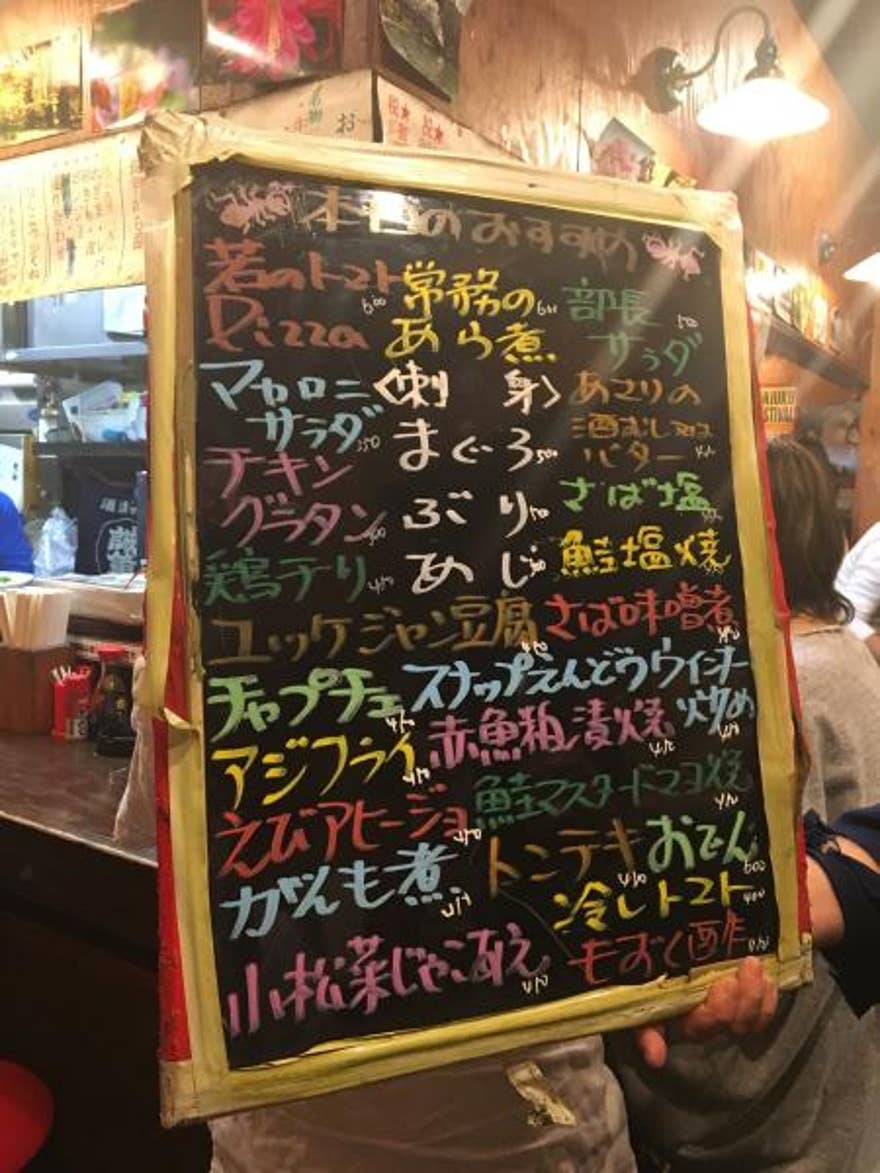 本日のおすすめ
若のトマト
Pizza 600
常務の
あら煮 600
部長
サラダ 500
マカロニ
サラダ 350
〈刺 身〉
まぐろ 500
ぶり
めじ
あさりの
酒むし又は
バター
チキン
グラタン
さば塩
鶏チリ 450
鮭塩焼
ユッケジャン豆腐 450
さば味噌煮
チャプチェ 450
スナップえんどうウインナー
炒め
アジフライ 450
赤魚粕漬焼
えびアヒージョ
鮭マスタードマヨ焼
がんも煮
トンテキ
おでん 600
冷しトマト 400
小松菜じゃこあえ 450
もずく酢